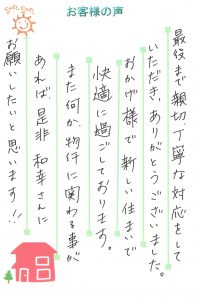 お客様の声
最後まで親切、丁寧な対応をして
いただき、ありがとうございました。
おかげ様で新しい住まいで
快適に過ごしております。
また何か、物件に関わる事が
あれば、是非 和幸さんに
お願いしたいと思います!!